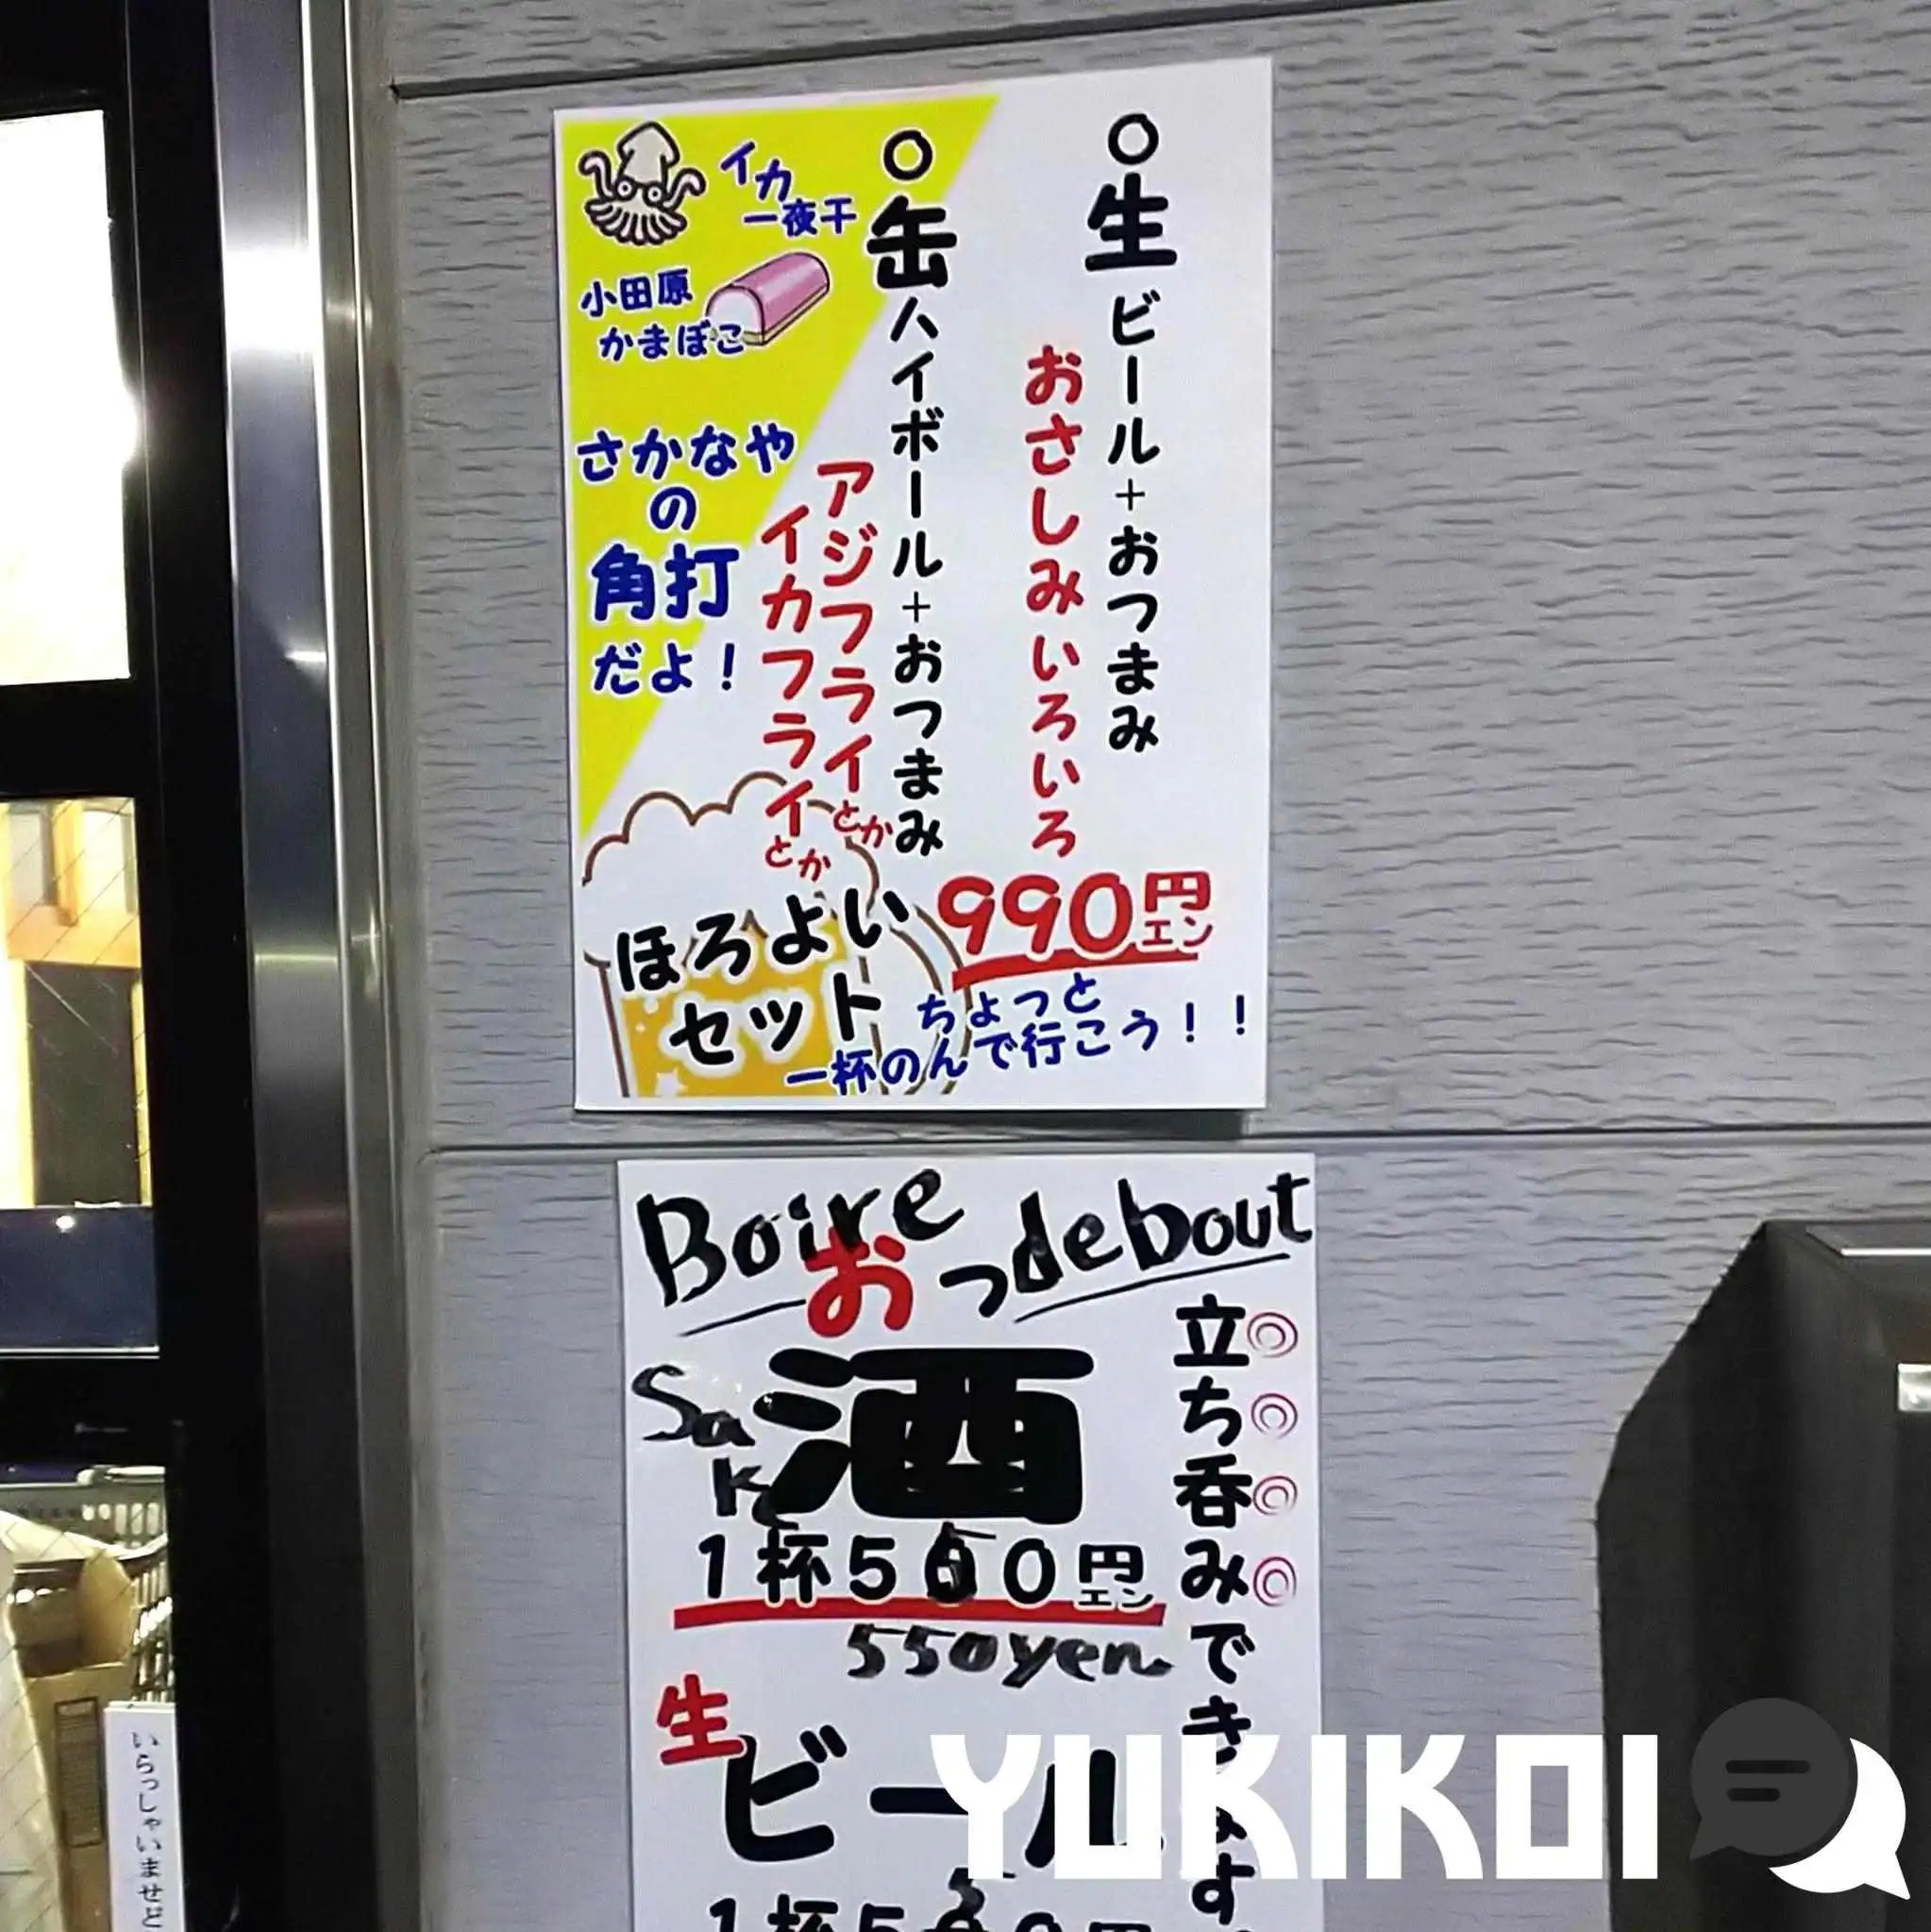 ○生ビール+おつまみ
おさしみいろいろ
○缶ハイボール+おつまみ
アジフライとか
イカフライとか
イカ
一夜干
小田原
かまぼこ
さかなや
の
角打
だよ！
990円
エン
ほろよい
セット
ちょっと
一杯のんで行こう！！
Boire debout
おっ
酒
Sake
立ち呑みできます
1杯550円
エン
550yen
生
ビール
いらっしゃいませ
YUKIKOI